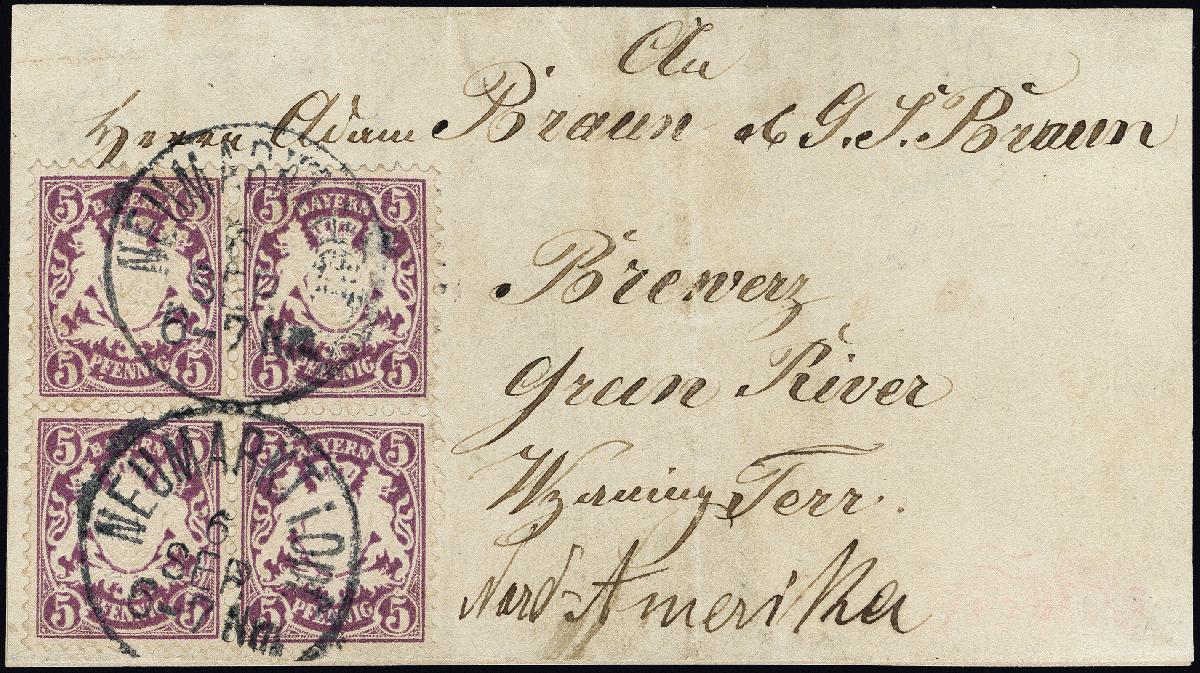 An
Herrn Adam Braun & G. S. Braun
Brewerz
Grun River
Wyaming Terr.
Nord-Amerika
5 BAYERN 5
5 PFENNIG 5
5 BAYERN 5
5 PFENNIG 5
5 BAYERN 5
5 PFENNIG 5
5 BAYERN 5
5 PFENNIG 5
NEUMARKT
SEP
6-7 Nm.
NEUMARKT I.OM
6
SEP
6-7 Nm.